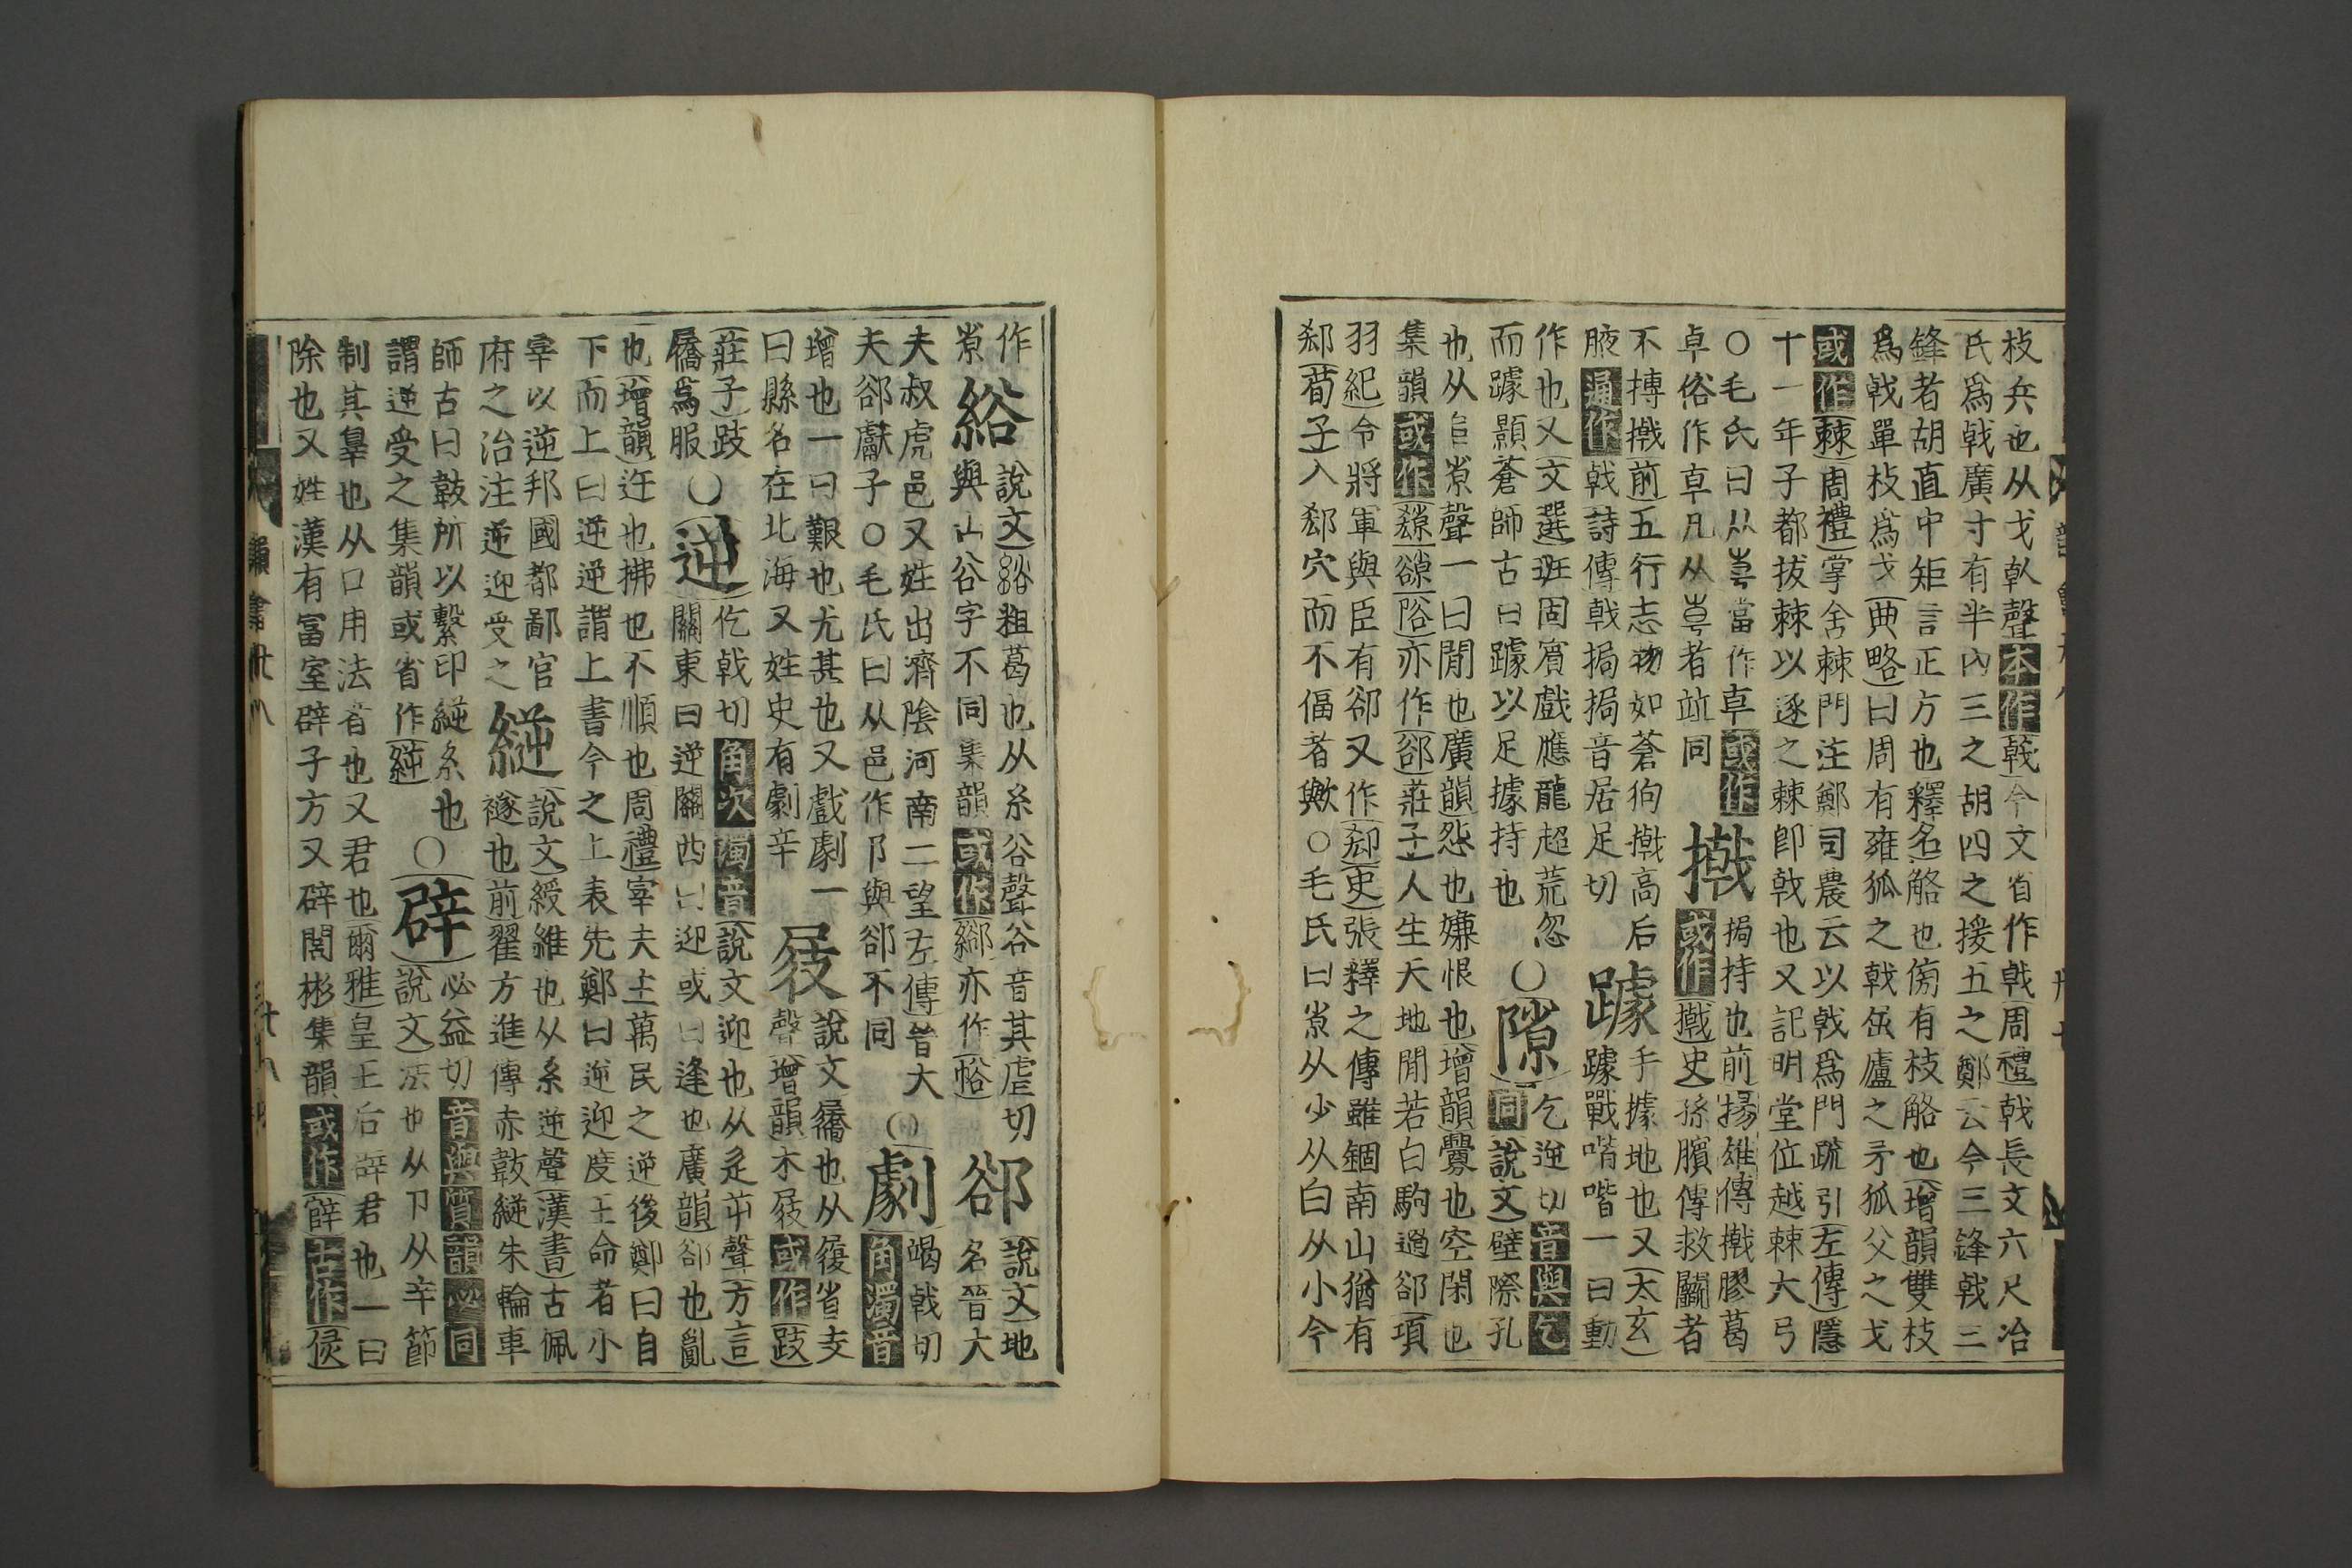 枝兵也从戈倝聲本作戟今文省作戟周禮戟長丈六尺冶
氏爲戟廣寸有半內三之胡四之援五之鄭云今三鋒戟三
鋒者胡直中矩言正方也釋名觡也傍有枝觡也增韻雙枝
爲戟單枝爲戈典略曰周有雍狐之戟屈盧之矛狐父之戈
或作棘周禮掌舍棘門注鄭司農云以戟爲門疏引左傳隱
十一年子都拔棘以逐之棘卽戟也又記明堂位越棘大弓
○毛氏曰从𠦝當作卓或作
卓俗作𠦝凡从𠦝者竝同
撠
挶持也前揚雄傳撠膠葛
或作撠史孫臏傳救鬭者
不摶撠前五行志物如蒼狗撠高后
腋通作戟詩傳戟挶挶音居足切
躆
手據地也又太玄
躆戰喈喈一曰動
作也又文選班固賓戲應龍超荒忽
而躆顥蒼師古曰躆以足據持也
○隙
乞逆切音與乞
同說文壁際孔
也从𨸏㡀聲一曰閒也廣韻怨也嫌恨也增韻釁也空閑也
集韻或作亦作郤莊子人生天地閒若白駒過郤項
羽紀令將軍與臣有郤又作郄史張釋之傳雖錮南山猶有
郄荀子入郄穴而不偪者歟○毛氏曰㡀从少从白从小今
作
㡀
綌
說文綌粗葛也从糸谷聲谷音其虐切
與山谷字不同集韻或作亦作
郤
說文地
名晉大
夫叔虎邑又姓出濟陰河南二望左傳晉大
夫郤獻子○毛氏曰从邑作阝與郤不同
○劇
竭戟切
角濁音
增也一曰艱也尤甚也又戲劇一
曰縣名在北海又姓史有劇辛
屐
說文屩也从履省支
聲增韻木屐或作跂
莊子跂
屩爲服
○逆
仡戟切角次濁音說文迎也从辵屰聲方言
關東曰逆關西曰迎或曰逢也廣韻郤也亂
也增韻迕也拂也不順也周禮宰夫主萬民之逆後鄭曰自
下而上曰逆逆謂上書今之上表先鄭曰逆迎度王命者小
宰以逆邦國都鄙官
府之治注逆迎受之
縌
說文綬維也从糸逆聲漢書古佩
襚也前翟方進傳赤韍縌朱輪車
師古曰韍所以繫印縌糸也
謂逆受之集韻或省作
○辟
必益切音與質韻必同
說文法也从卩从辛節
制其辠也从口用法者也又君也爾雅皇王后辟君也一曰
除也又姓漢有富室辟子方又辟閭彬集韻或作古作
韻會廿八